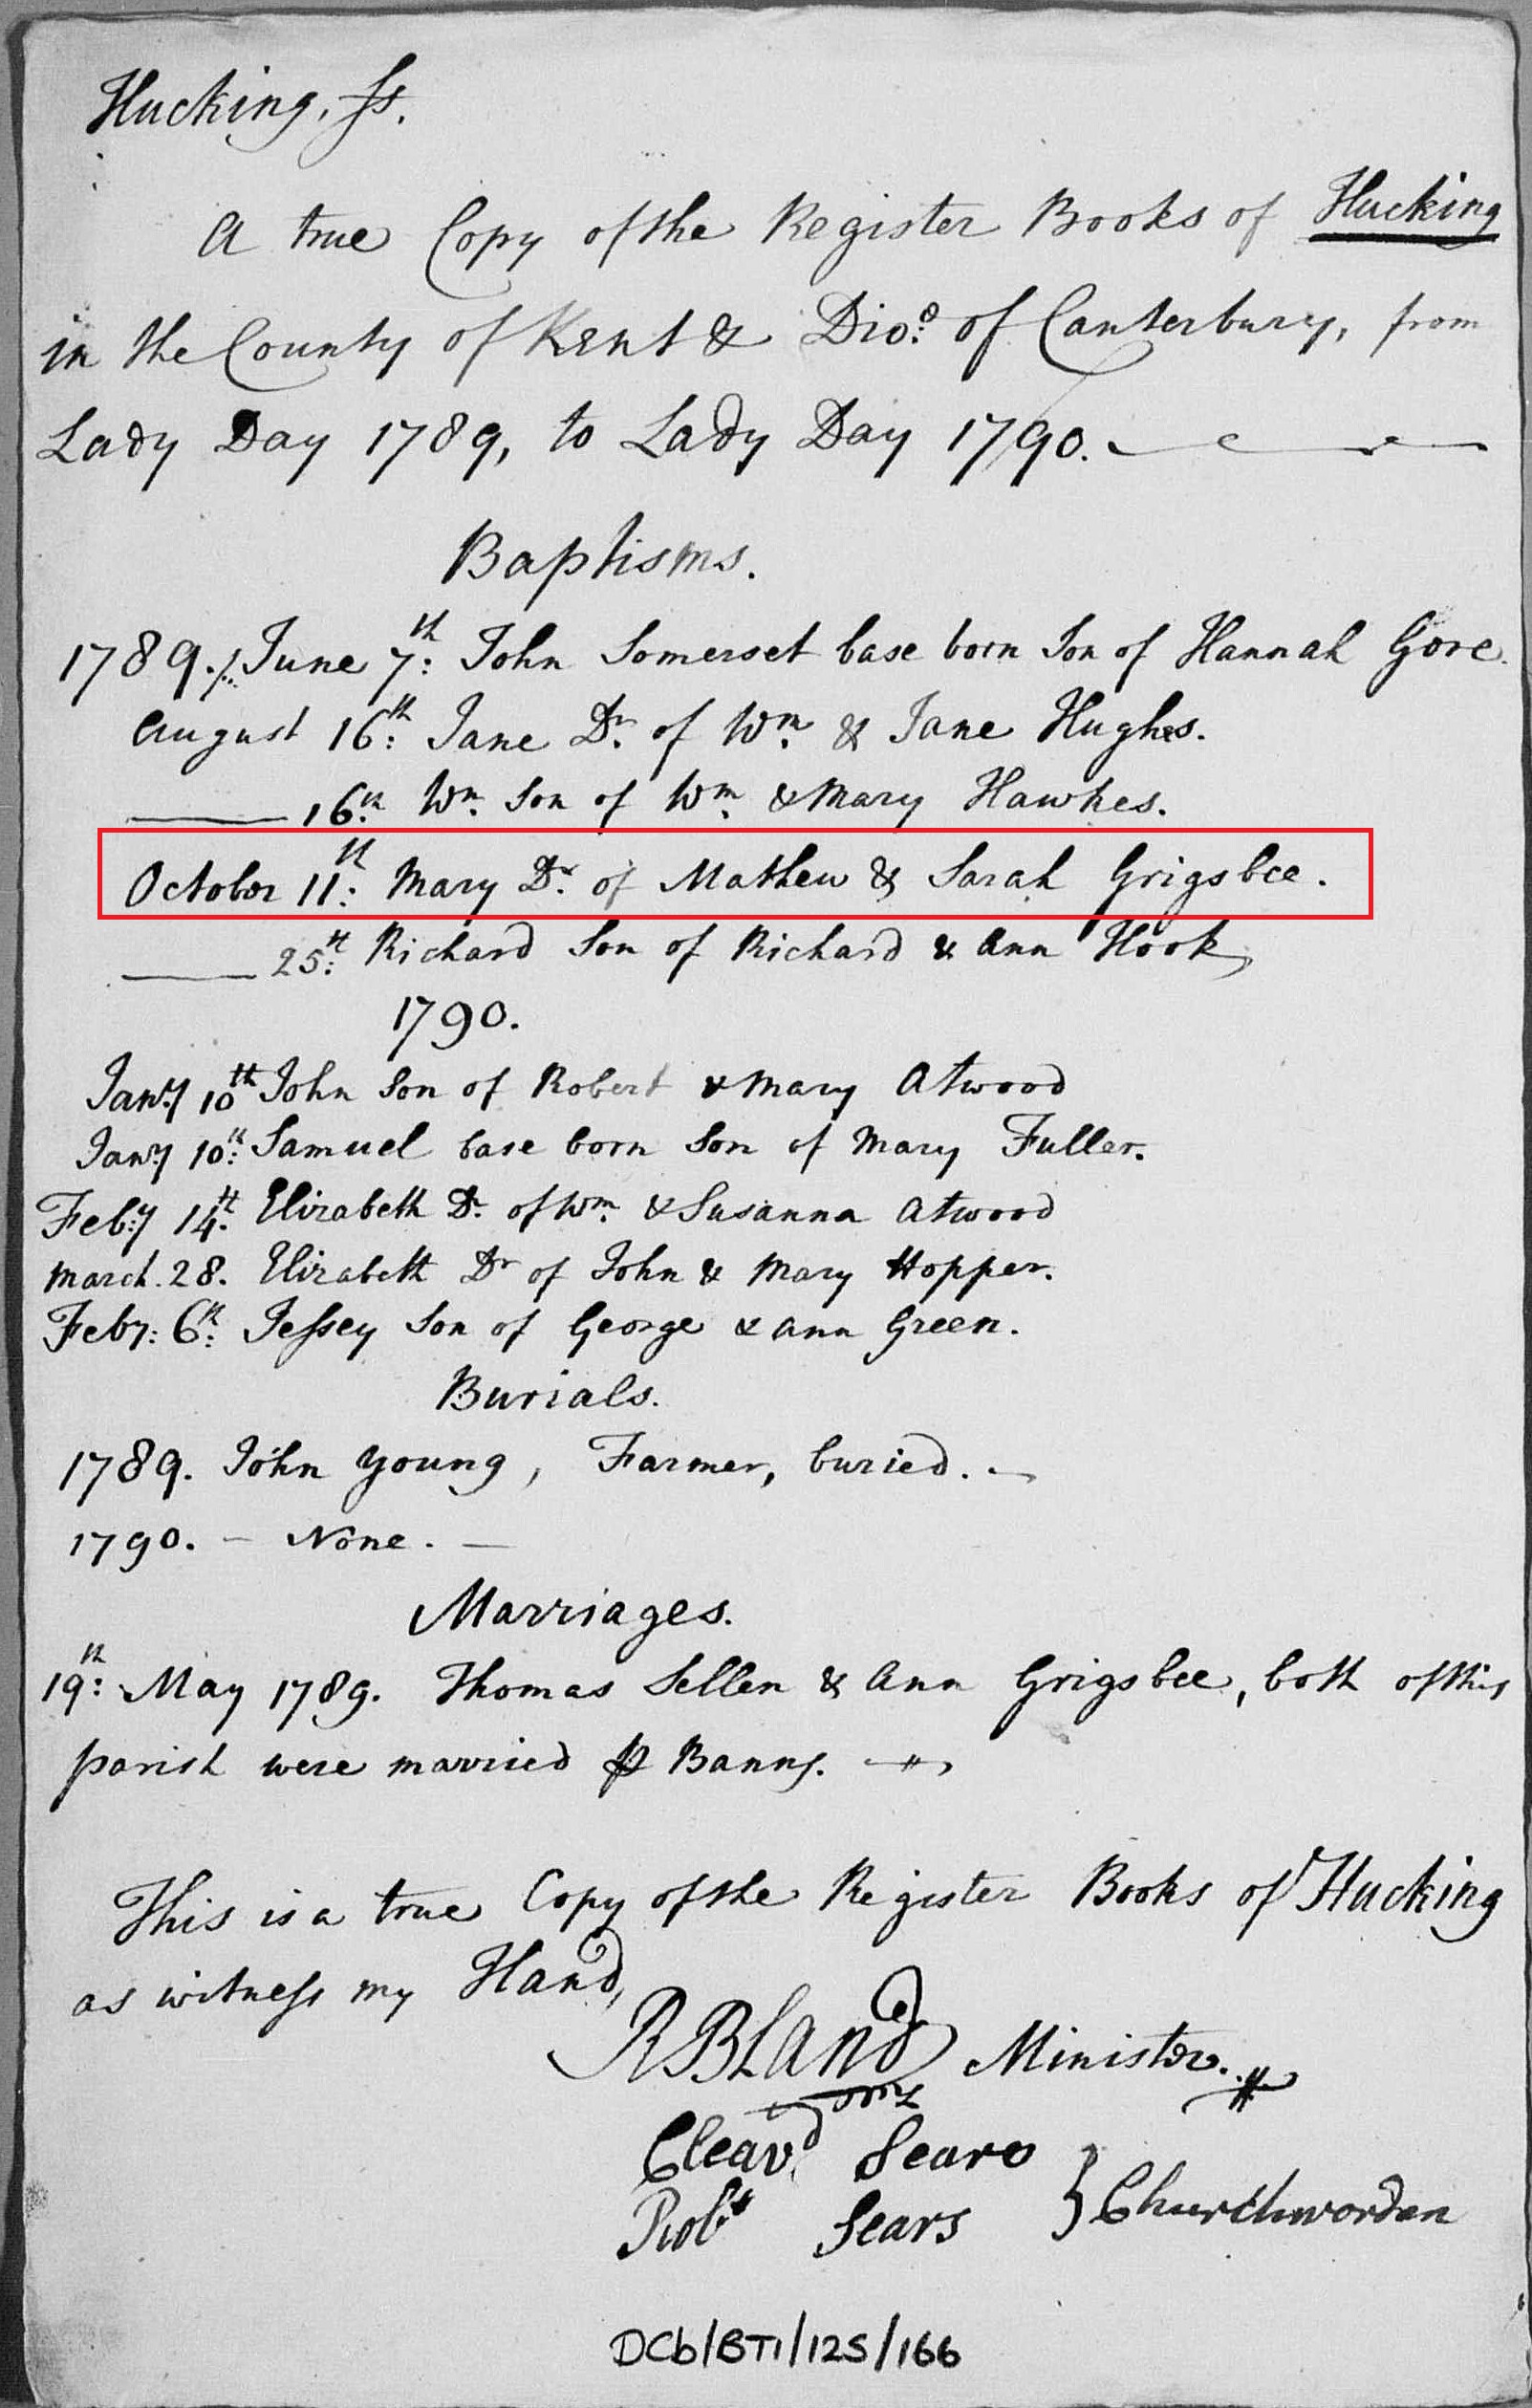 Hucking, ss.
A true Copy of the Register Books of Hucking
in the County of Kent & Dio:e of Canterbury, from
Lady Day 1789, to Lady Day 1790.
Baptisms.
1789. June 7:th John Somerset base born Son of Hannah Gore.
August 16:th Jane Dr. of Wm. & Jane Hughes.
—— 16:th Wm. Son of Wm. & Mary Hawkes.
October 11:th Mary Dr. of Mathew & Sarah Grigsbee.
—— 25:th Richard Son of Richard & Ann Hook,
1790.
Jan:y 10th John Son of Robert & Mary Atwood
Jan:y 10:th Samuel base born Son of Mary Fuller.
Feb:y 14:th Elizabeth Dr. of Wm. & Susanna Atwood
March. 28. Elizabeth Dr of John & Mary Hopper.
Feby: 6:th Jessey Son of George & Ann Green.
Burials.
1789. John Young, Farmer, buried. —
1790. — None. —
Marriages.
19:th May 1789. Thomas Sellen & Ann Grigsbee, both of this
parish were married ꝑ Banns.
This is a true Copy of the Register Books of Hucking
as witness my Hand,
R BLand Minister.
Cleavd Sears
Robt Sears } Churchwarden
DCb/BT1/125/166